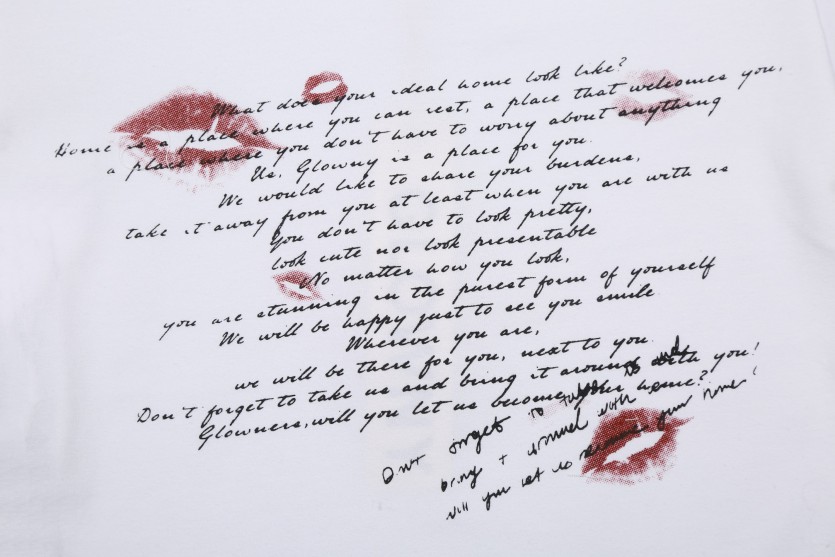 What does your ideal home look like?
Home is a place where you can rest, a place that welcomes you,
a place where you don't have to worry about anything
Us, Glowny is a place for you.
We would like to share your burdens,
take it away from you at least when you are with us
You don't have to look pretty,
look cute nor look presentable
No matter how you look,
you are stunning in the purest form of yourself
We will be happy just to see you smile
Wherever you are,
we will be there for you, next to you.
Don't forget to take us and bring it around with you!
Glowners, will you let us become your home?
forget to
bring
will you let us become your home?